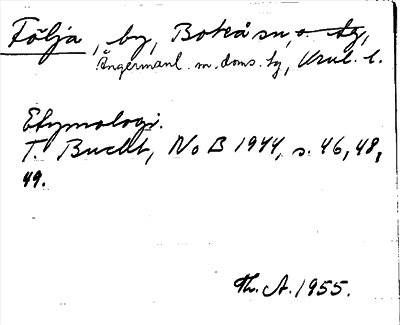 Följa, by, Boteå sn, o tg,
Ångermanl. m. doms. tg, Vnrl. l.
Etymologi.
T. Bucht, NoB 1944, s. 46, 48,
49.
Th. A. 1955.